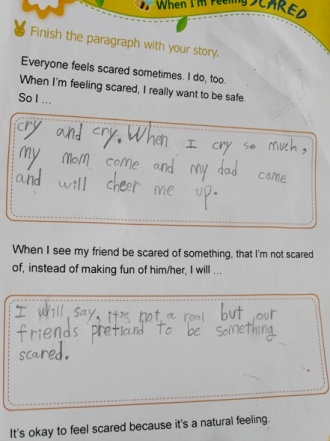 When I'm Feeling SCARED
Finish the paragraph with your story.
Everyone feels scared sometimes. I do, too.
When I'm feeling scared, I really want to be safe.
So I ...
cry and cry. When I cry so much,
my mom come and my dad come
and will cheer me up.
When I see my friend be scared of something, that I'm not scared
of, instead of making fun of him/her, I will ...
I will say, it's not a real but our
friends pretiand to be something
scared.
It's okay to feel scared because it's a natural feeling.